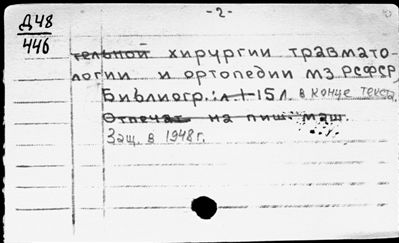 Д48
446
-2-
тельной хирургии травмато-
логии и ортопедии МЗ РСФСР
Библиогр.: л. 1-15 л. в конце текста
Отпечат на пиш. маш.
Защ. в 1948 г.